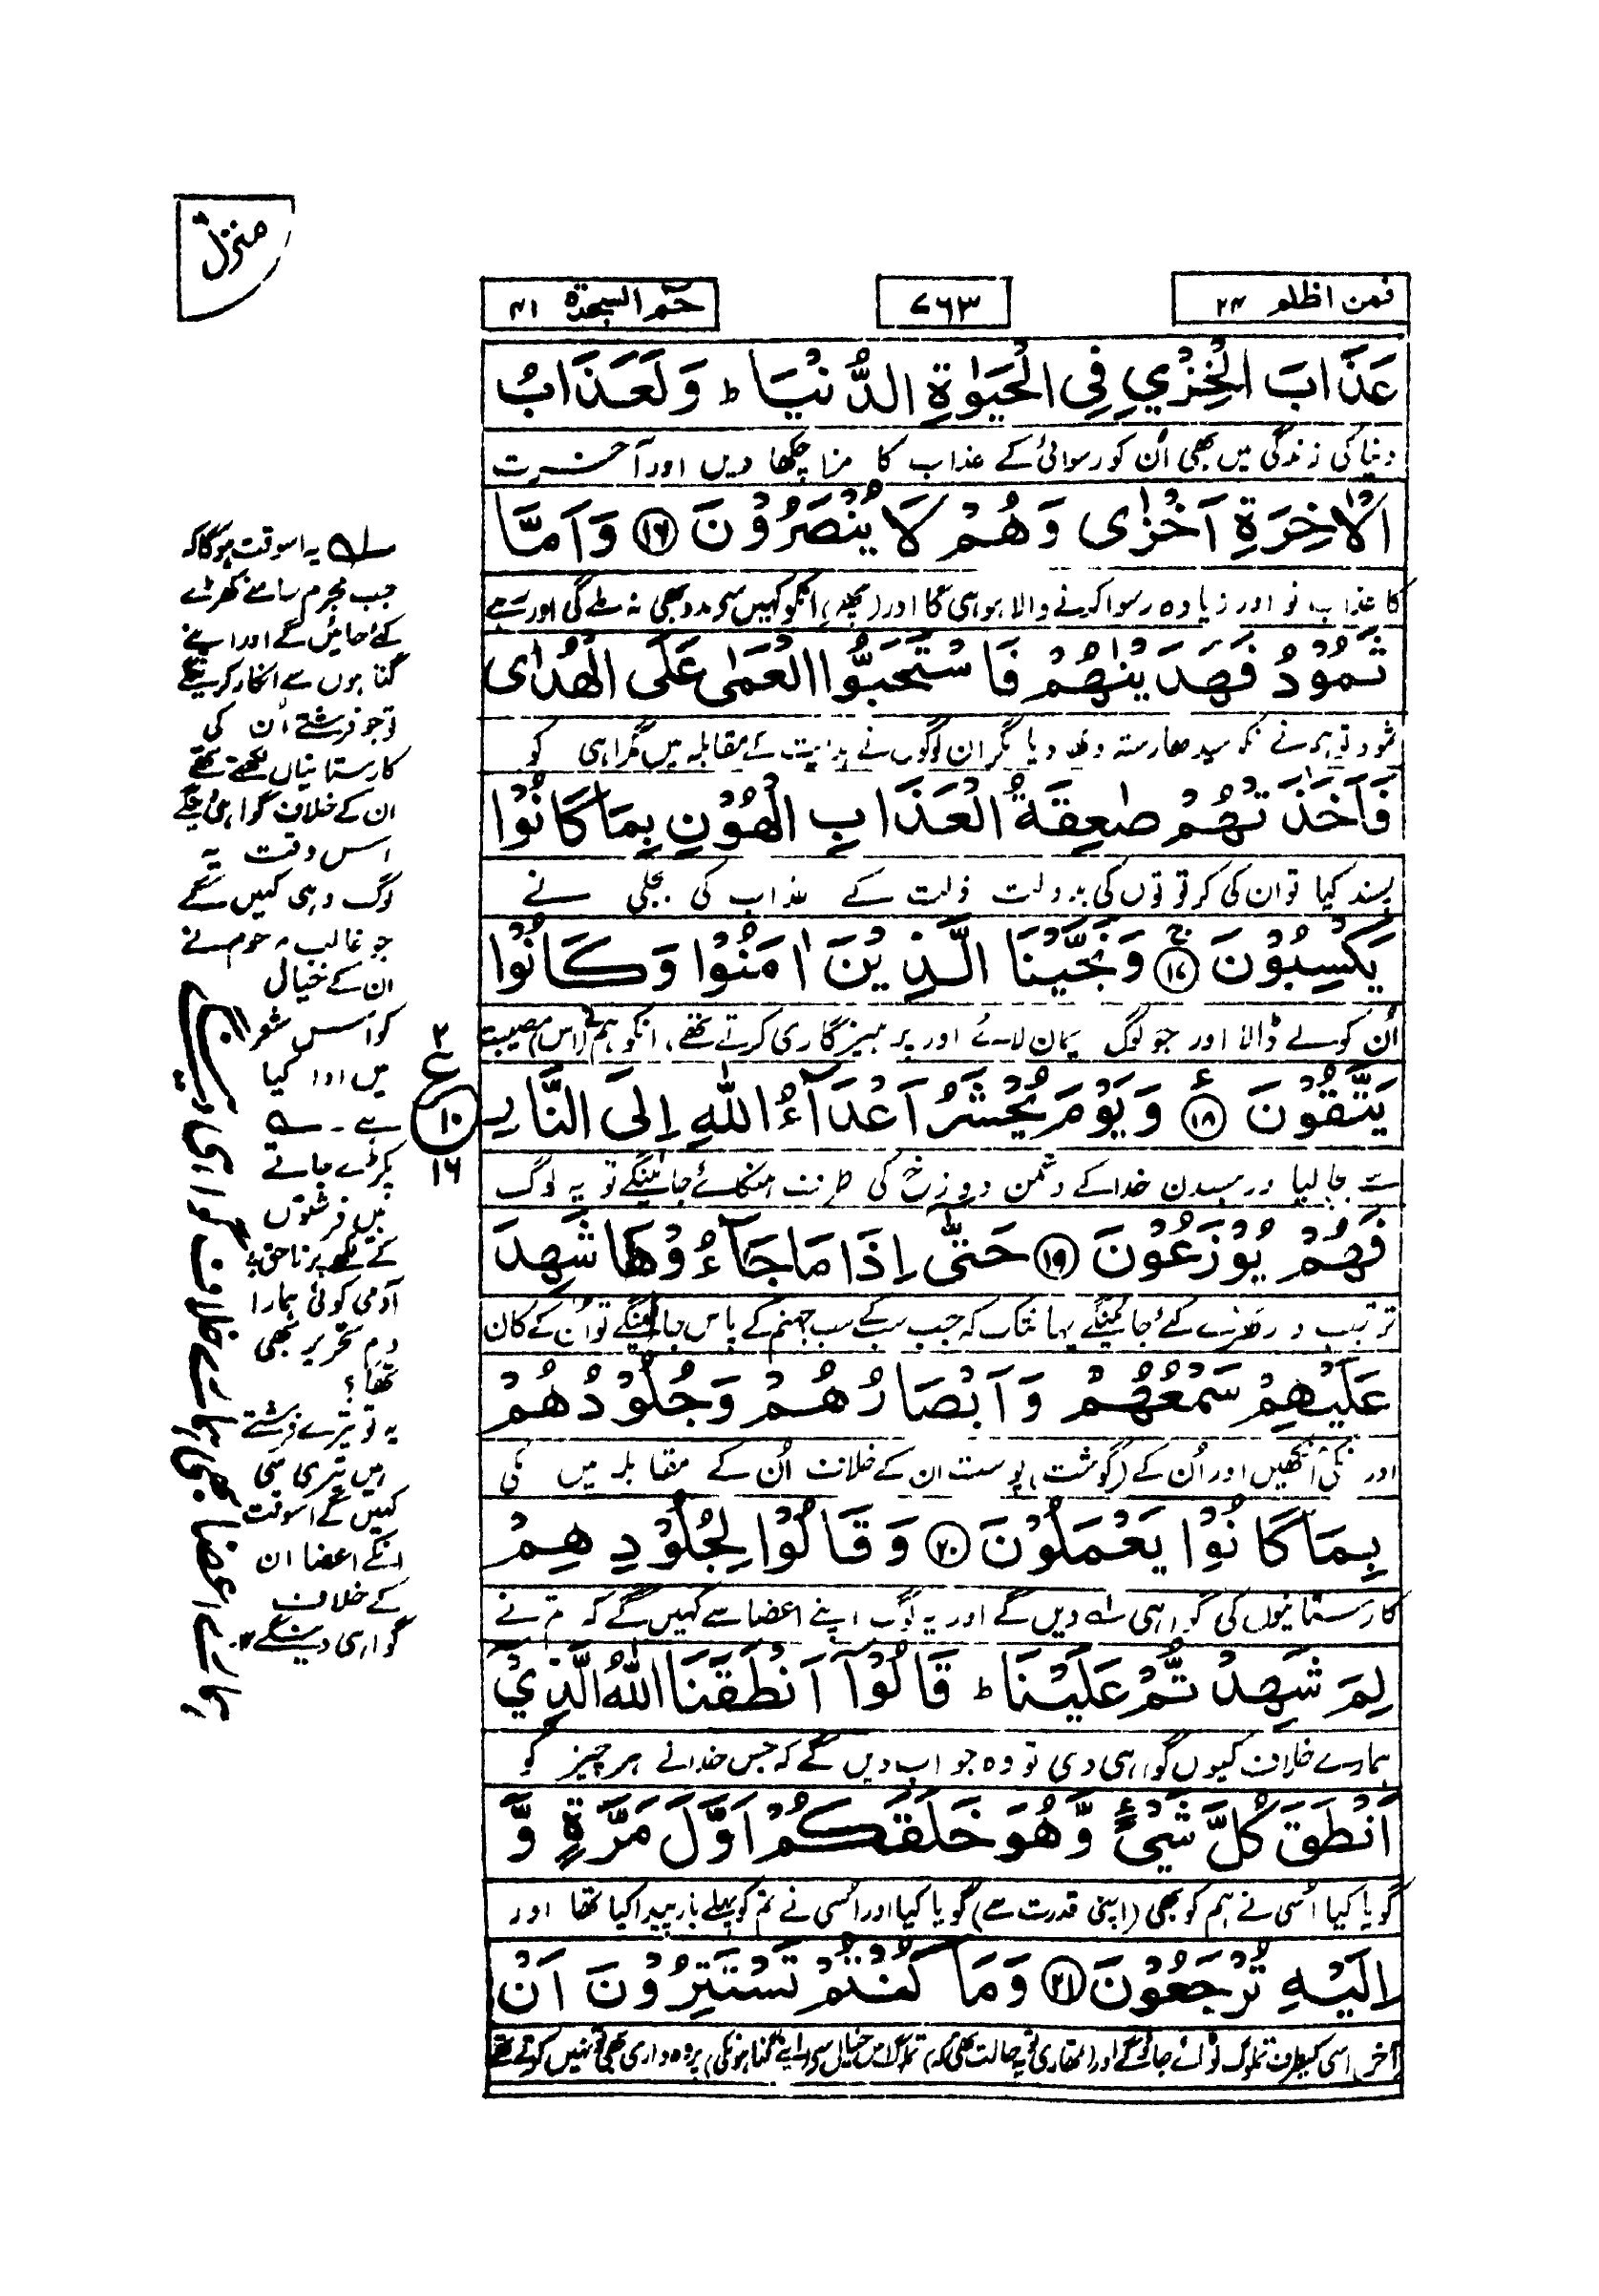 منزل
فمن اظلم ۲۴
۷۶۳
حٰم السجدة ۴۱
عَذَابَ الْخِزْيِ فِی الْحَيٰوةِ الدُّنْيَا ؕ وَلَعَذَابُ
دنیا کی زندگی میں بھی اُن کو رسوائی کے عذاب کا مزا چکھا دیں اور آخرت
الْاٰخِرَةِ اَخْزٰى وَهُمْ لَا يُنْصَرُوْنَ ۝۱۶ وَاَمَّا
کا عذاب تو اور زیادہ رسوا کرنے والا ہوہی گا اور (پھر) انکو کہیں سے مدد بھی نہ ملے گی اور رہے
ثَمُوْدُ فَهَدَيْنٰهُمْ فَاسْتَحَبُّوا الْعَمٰى عَلَى الْهُدٰى
ثمود تو ہم نے انکو سیدھا رستہ دکھا دیا مگر ان لوگوں نے ہدایت کے مقابلہ میں گمراہی کو
فَاَخَذَتْهُمْ صٰعِقَةُ الْعَذَابِ الْهُوْنِ بِمَا كَانُوْا
پسند کیا تو ان کی کرتوتوں کی بدولت ذلت کے عذاب کی بجلی نے
يَكْسِبُوْنَ ۝۱۷ۚ وَنَجَّيْنَا الَّذِيْنَ اٰمَنُوْا وَكَانُوْا
اُن کو لے ڈالا اور جو لوگ ایمان لائے اور پرہیزگاری کرتے تھے، انکو ہم نے (اس) مصیبت
يَتَّقُوْنَ ۝۱۸ع وَيَوْمَ يُحْشَرُ اَعْدَآءُ اللّٰهِ اِلَى النَّارِ
سے بچا لیا اور جسدن خدا کے دشمن دوزخ کی طرف ہنکائے جائینگے تو یہ لوگ
فَهُمْ يُوْزَعُوْنَ ۝۱۹ حَتّٰٓى اِذَا مَا جَآءُوْهَا شَهِدَ
ترتیب وار کھڑے کئے جائینگے یہانتک کہ جب سب کے سب جہنم کے پاس جا پہنچیگے تو اُن کے کان
عَلَيْهِمْ سَمْعُهُمْ وَاَبْصَارُهُمْ وَجُلُوْدُهُمْ
اور انکی آنکھیں اور اُن کے (گوشت) پوست ان کے خلاف اُن کے مقابلہ میں انکی
بِمَا كَانُوْا يَعْمَلُوْنَ ۝۲۰ وَقَالُوْا لِجُلُوْدِهِمْ
کارستانیوں کی گواہی ۱ہ دیں گے اور یہ لوگ اپنے اعضا سے کہیں گے کہ تم نے
لِمَ شَهِدْتُّمْ عَلَيْنَا ؕ قَالُوْٓا اَنْطَقَنَا اللّٰهُ الَّذِيْٓ
ہمارے خلاف کیوں گواہی دی تو وہ جواب دیں گے کہ جس خدا نے ہر چیز کو
اَنْطَقَ كُلَّ شَيْءٍ وَّهُوَ خَلَقَكُمْ اَوَّلَ مَرَّةٍ وَّ
گویا کیا اُسی نے ہم کو بھی (اپنی قدرت سے) گویا کیا اور اُسی نے تم کو پہلے بار پیدا کیا تھا اور
اِلَيْهِ تُرْجَعُوْنَ ۝۲۱ وَمَا كُنْتُمْ تَسْتَتِرُوْنَ اَنْ
(آخر) اسی کیطرف تم لوگ لوٹائے جاؤگے اور تمھاری تو یہ حالت تھی کہ تم لوگ اس خیال سے (اپنے گناہونکی) پردہ داری بھی تو نہیں کرتے تھے
۲
ع
۱۰
۱۶
۱ہ یہ اسوقت ہوگا کہ
جب مجرم سامنے کھڑے
کئے جائیں گے اور اپنے
گناہوں سے انکار کرینگے
تو جو فرشتے اُن کی
کارستانیاں لکھتے تھے
ان کے خلاف گواہی دینگے
اس وقت یہ
لوگ وہی کہیں گے
جو غالب مرحوم نے
ان کے خیال
کو اُس شعر
میں ادا کیا
ہے۔ ے
پکڑے جاتے
ہیں فرشتوں
کے لکھے پر ناحق
آدمی کوئی ہمارا
دم تحریر بھی
تھا؟
یہ تو تیرے فرشتے
ہیں تیری سی
کہیں گے اسوقت
انکے اعضا ان
کے خلاف
گواہی دینگے ۱۲
ہمارے اعضا بھی ہمارے خلاف گواہی دینگے